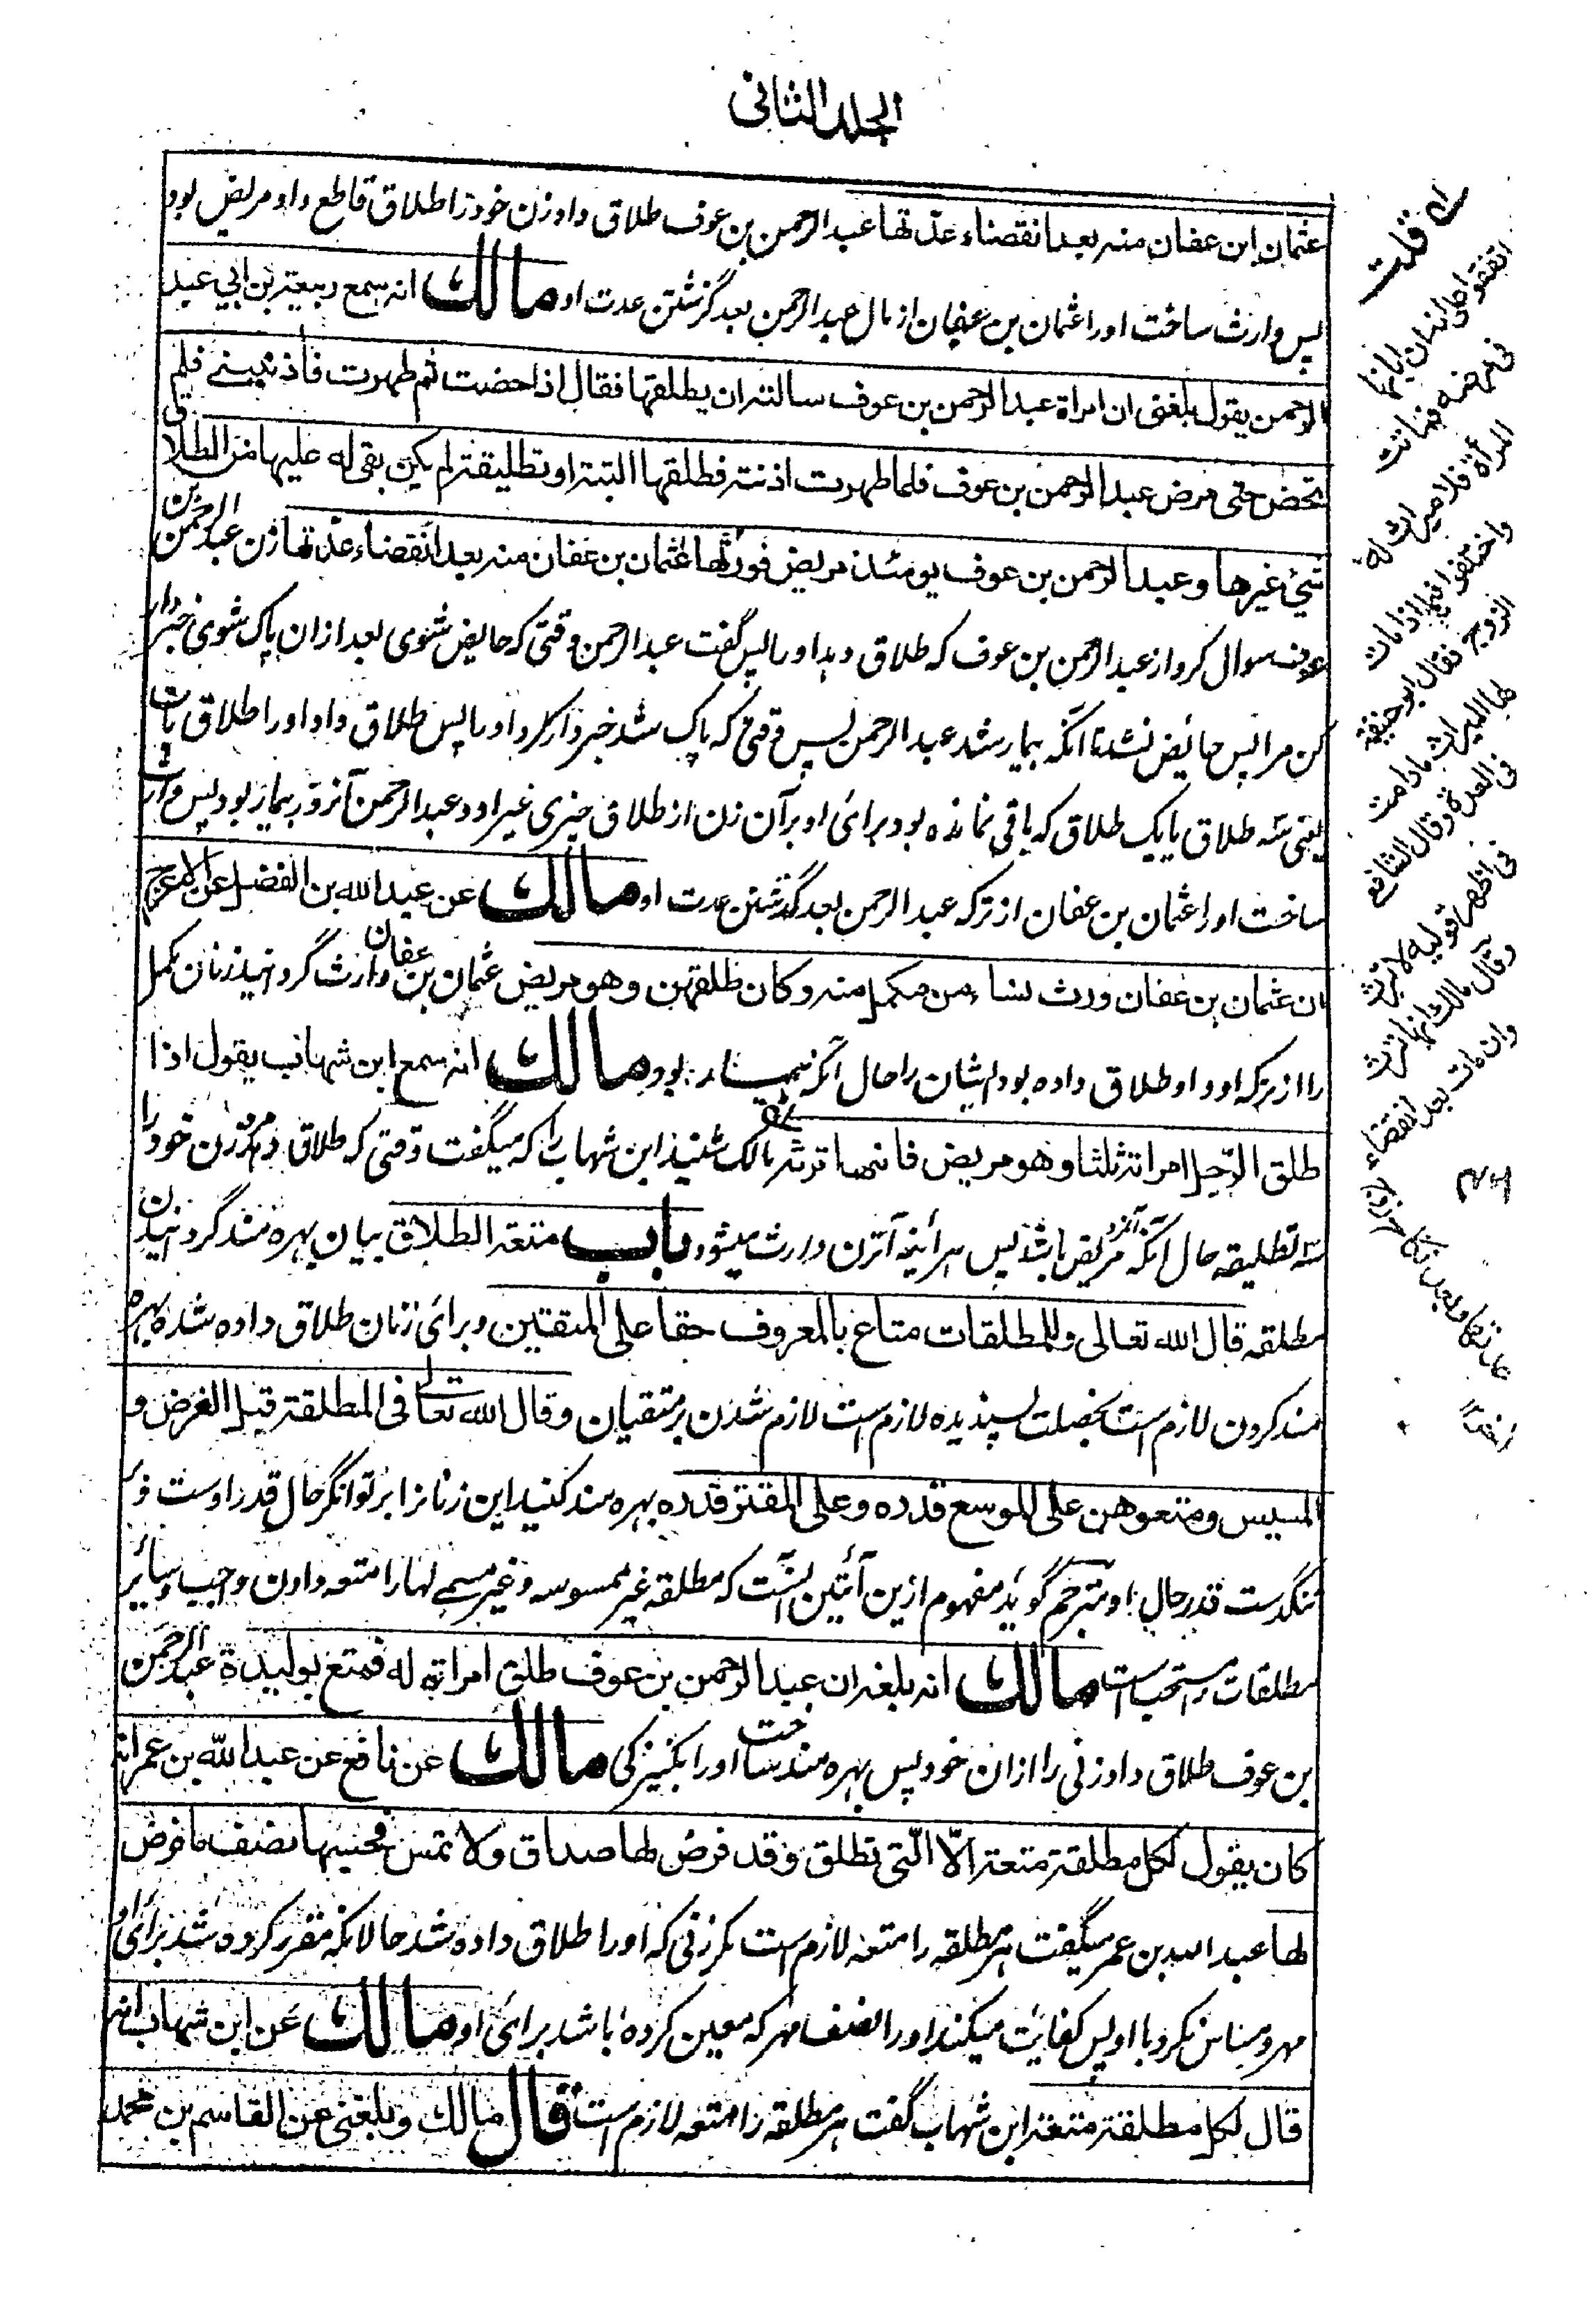 الجلد الثانی
عثمان ابن عفان منه بعد انقضاء عدّتها عبد الرحمن بن عوف طلاق داد زن خود را طلاق قاطع و او مریض بود
پس وارث ساخت او را عثمان بن عفان از مال عبد الرحمن بعد گزشتن عدت او مالك انه سمع ربیعة بن ابی عبد
الرحمن یقول بلغنی ان امراة عبد الرحمن بن عوف سالته ان یطلقها فقال اذا حضت ثم طهرت فأذنینے فلم
تحض حتی مرض عبد الرحمن بن عوف فلما طهرت اذنته فطلقها البتة او تطلیقة لم یکن بقی له علیها من الطلاق
شیٔ غیرها و عبد الرحمن بن عوف یومئذ مریض فورثها عثمان بن عفان منه بعد انقضاء عدّتها زن عبد الرحمن بن
عوف سوال کرد از عبد الرحمن بن عوف که طلاق دهد او را پس گفت عبد الرحمن وقتی که حایض شوی بعد ازان پاک شوی خبردار
کن مرا پس حائض نشد تا آنکه بیمار شد عبد الرحمن پس وقتی که پاک شد خبردار کرد او را پس طلاق داد او را طلاق بات
یعنی سه طلاق یا یک طلاق که باقی نمانده بود برای او بر آن زن از طلاق چیزی غیر او و عبد الرحمن آنروز بیمار بود پس وارث
ساخت او را عثمان بن عفان از ترکه عبد الرحمن بعد گذشتن عدت او مالك عن عبد الله بن الفضل عن الاعرج
ان عثمان بن عفان ورث نساء بن مکمل منه وکان طلقهن و هو مریض عثمان بن عفان وارث گردانید زنان مکمل
را از ترکه او و او طلاق داده بود ایشان را حال آنکه بیمار بود مالك انه سمع ابن شهاب یقول اذا
طلق الرّجل امراته ثلثا و هو مریض فانها ترثه مالک شنید ابن شهاب را که میگفت وقتی که طلاق دهد مرد زن خود را
سه تطلیقه حال آنکه آنمرد مریض باشد پس هر آئینه آنزن وارث میشود باب متعة الطلاق بیان بهره مند گردانیدن
مطلقه قال الله تعالی وللمطلقات متاع بالمعروف حقا علی المتقین و برای زنان طلاق داده شده بهره
مند کردن لازم است بخصلت پسندیده لازم است لازم شدن بر متقیان وقال الله تعالی فی المطلقة قبل الفرض و
المسیس ومتعوهن علی الموسع قدره وعلی المقتر قدره بهره مند کنید این زنانرا بر توانگر حال قدر اوست و بر
تنگدست قدر حال او مترجم گوید مفهوم ازین آیتین آنست که مطلقه غیر ممسوسه و غیر مسمے لها را متعه دادن واجب و سائر
مطلقات را مستحب است مالك انه بلغه ان عبد الرحمن بن عوف طلق امراة له فمتع بولیدة عبد الرحمن
بن عوف طلاق داد زنی را ازان خود پس بهره مند ساخت او را بکنیزکی مالك عن نافع عن عبد الله بن عمر انه
کان یقول لکل مطلقة متعة الّا الّتی تطلق وقد فرض لها صداق ولا تمس فحسبها نصف ما فرض
لها عبد الله بن عمر میگفت هر مطلقه را متعه لازم است مگر زنی که او را طلاق داده شد حالانکه مقرر کرده شد برای او
مهر و مساس نکرد با او پس کفایت میکند او را نصف مهر که معین کرده باشد برای او مالك عن ابن شهاب انه
قال لکل مطلقة متعة ابن شهاب گفت هر مطلقه را متعه لازم است قال مالك وبلغنی عن القاسم بن محمد
قلت
اتفقوا
فی مرضه فماتت
المرأة فلا میراث له
واختلفوا فیما اذا مات
الزوج فقال ابو حنیفة
لها المیراث ما دامت
فی العدة وقال الشافعی
فی اظهر قولیه لا ترث
وقال مالك انها ترث
وان مات بعد انقضاء
عدتها وبعد نکاح زوج
ایضا